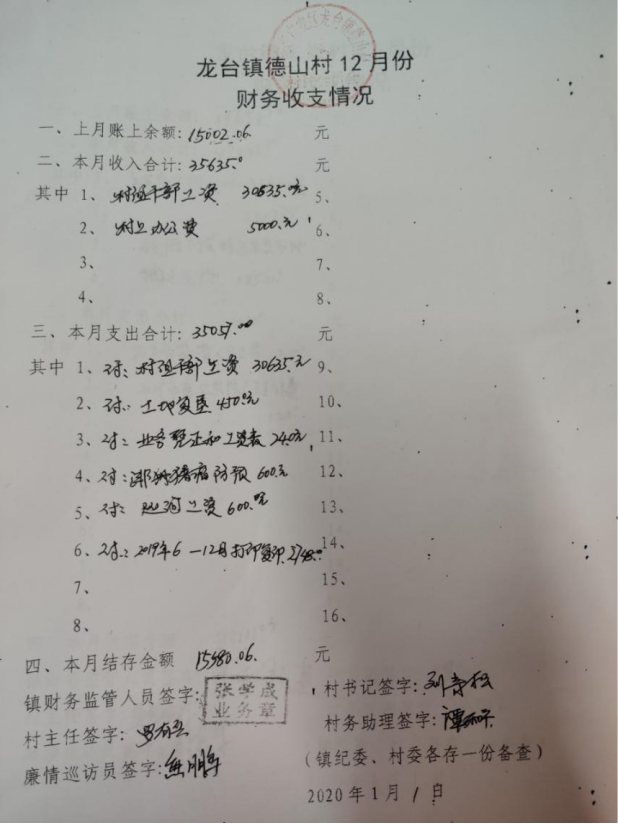 龙台镇德山村12月份
财务收支情况
一、上月账上余额:15002.06 元
二、本月收入合计:35635.0 元
其中 1、村组干部工资 30635.元 5、
2、村上办公费 5000.元 6、
3、 7、
4、 8、
三、本月支出合计:35057.00 元
其中 1、付:村组干部工资 30635.元 9、
2、付:土地复垦450元 10、
3、付:业务凭证和工资表 24.0元 11、
4、付:非洲猪瘟防预 600.元 12、
5、付:巡河工资 600.元 13、
6、付:2019年6—12月打印复印2748.0 14、
7、 15、
8、 16、
四、本月结存金额 15580.06. 元
镇财务监管人员签字: 张学成 业务章 村书记签字:
村主任签字: 村务助理签字:
廉情巡访员签字: (镇纪委、村委各存一份备查)
2020年1月1日